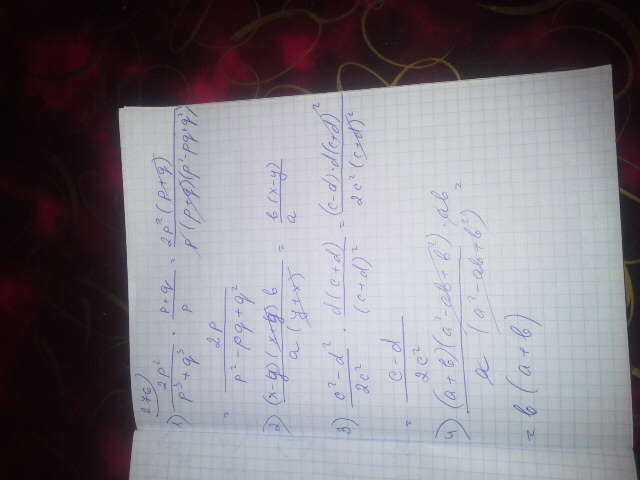 276)
1) 2p²/(p³+q³) · (p+q)/p = 2p²(p+q)/(p(p+q)(p²-pq+q²))
= 2p/(p²-pq+q²)
2) (x-y)(x+y)b/(a(y+x)) = b(x-y)/a
3) (c²-d²)/(2c²) · d(c+d)/(c+d)² = (c-d)·d(c+d)²/(2c²(c+d)²)
= (c-d)/(2c²)
4) (a+b)(a²-ab+b²)·ab/(a(a²-ab+b²)) =
= b(a+b)